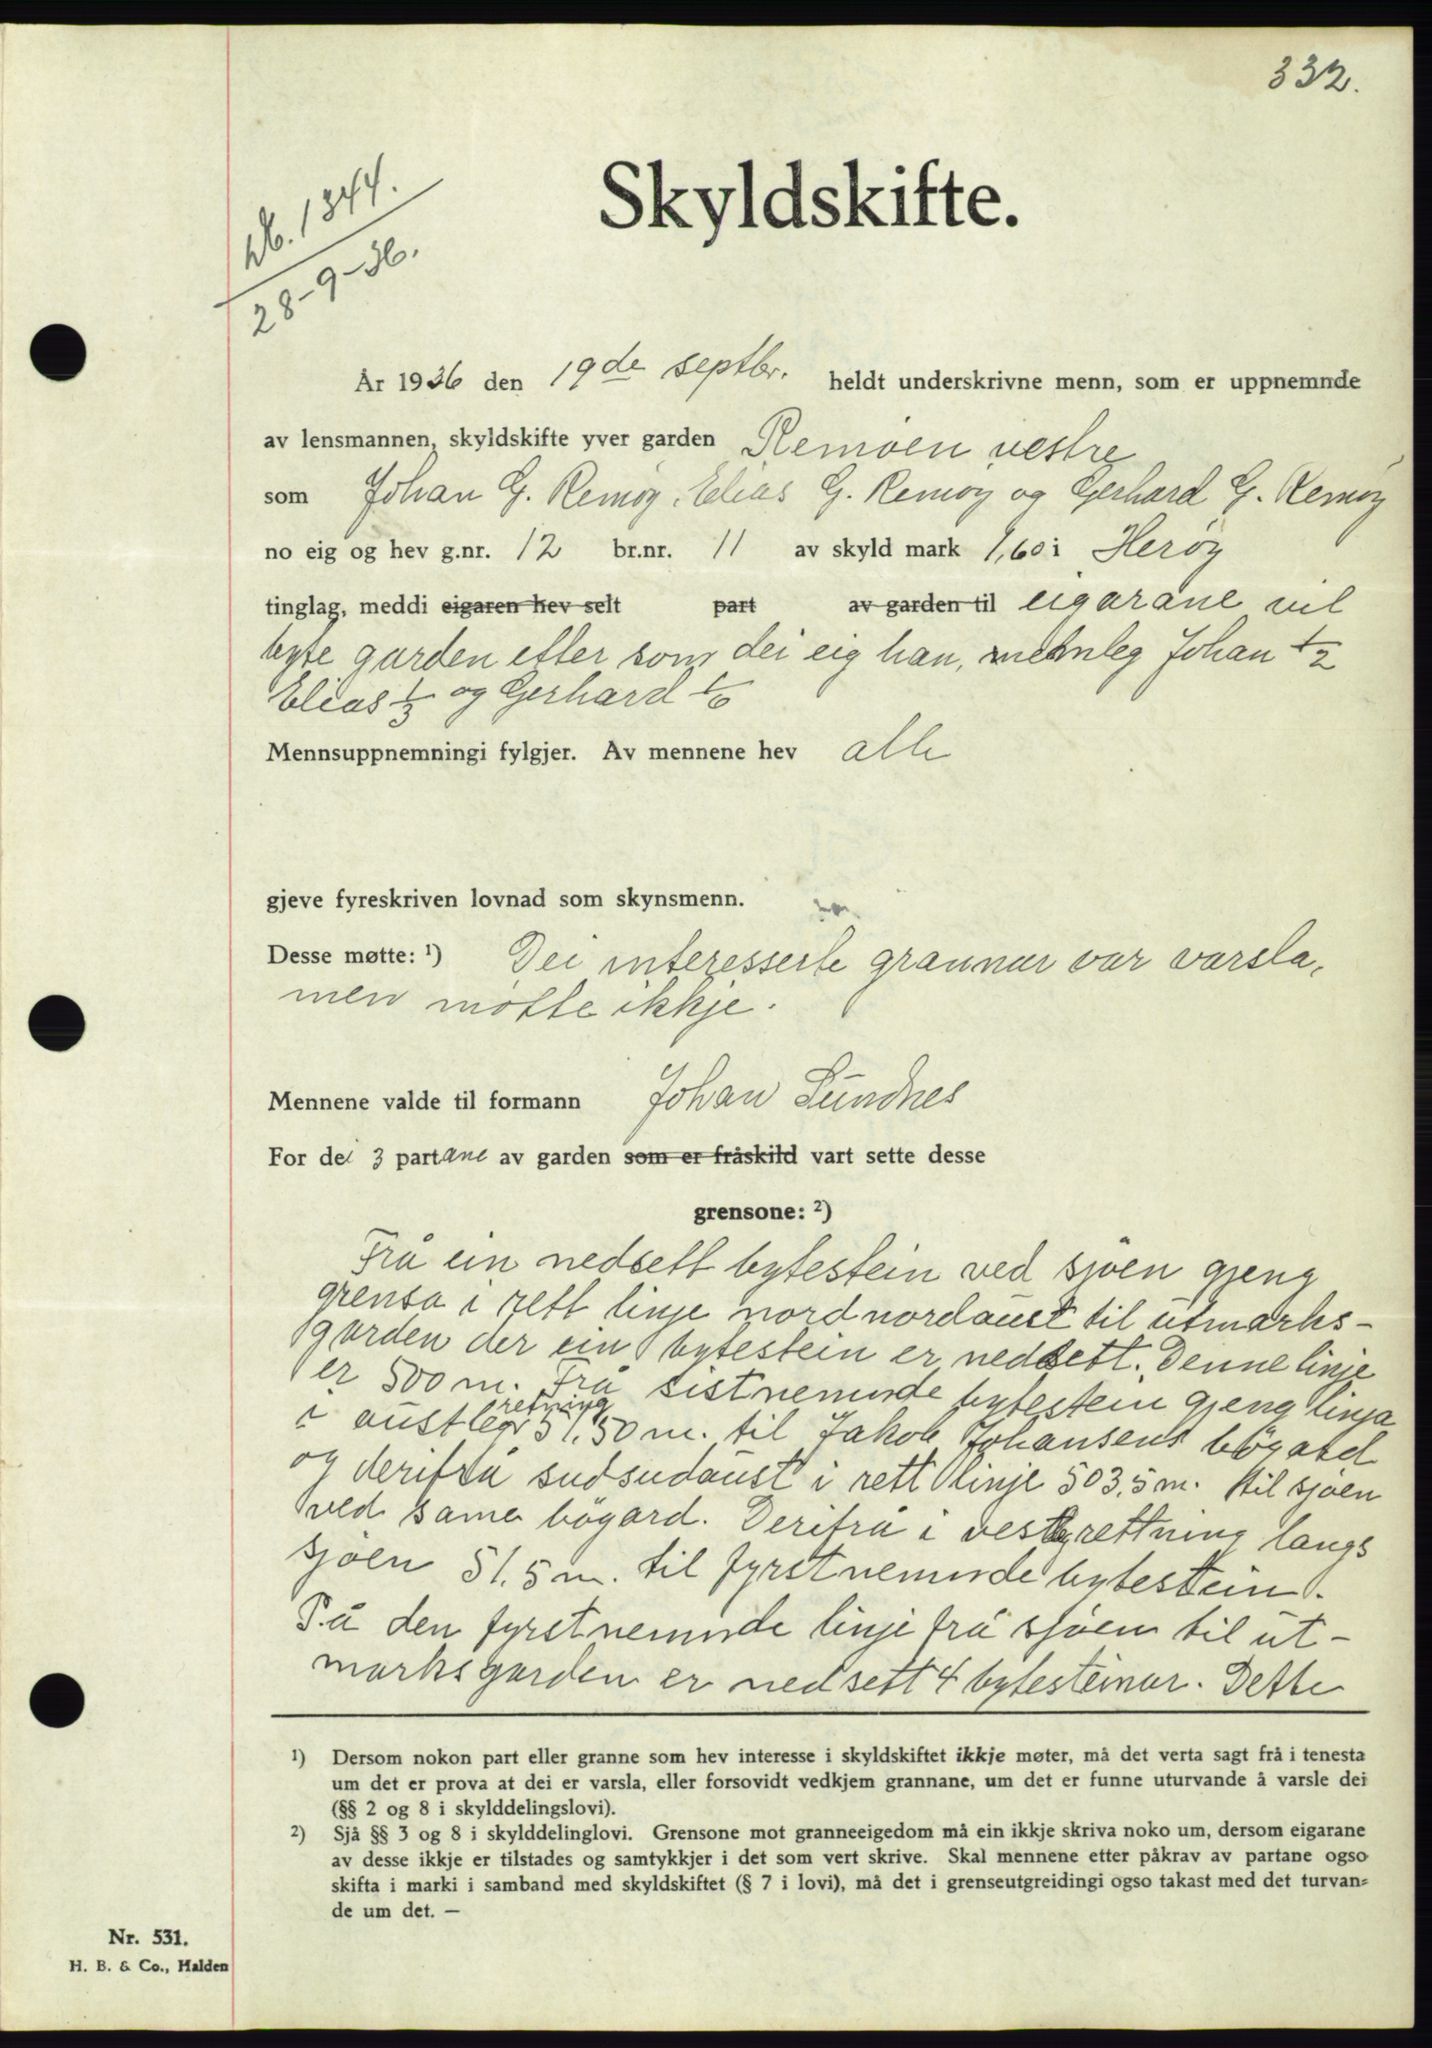 332.
Nb. 1344.
28-9-36.
Skyldskifte.
År 1936 den 19de septbr. heldt underskrivne menn, som er uppnemnde
av lensmannen, skyldskifte yver garden Remöen vestre
som Johan G. Remøy, Elias G. Remøy og Gerhard G. Remøy
no eig og hev g.nr. 12 br.nr. 11 av skyld mark 1,60 i Herøy
tinglag, meddi eigaren hev selt part av garden til eigarane vil
byte garden etter som dei eig han, nemnleg Johan 1/2
Elias 1/3 og Gerhard 1/6
Mennsuppnemningi fylgjer. Av mennene hev alle
gjeve fyreskriven lovnad som skynsmenn.
Desse møtte: ¹) Dei interesserte grannar var varsla,
men møtte ikkje.
Mennene valde til formann Johan Sundnes
For dei 3 partane av garden som er fråskild vart sette desse
grensone: ²)
Frå ein nedsett bytestein ved sjöen gjeng
grensa i rett linje nordnordaust til utmarks-
garden der ein bytestein er nedsett. Denne linje
er 500 m. Frå sistnemnde bytestein gjeng linja
i austleg retning 51,50 m. til Jakob Johansens bögard
og derifrå sudsudaust i rett linje 503,5 m. til sjöen
ved same bögard. Derifrå i vestrettning langs
sjöen 51,5 m. til fyrstnemnde bytestein.
På den fyrstnemnde linje frå sjöen til ut-
marksgarden er nedsett 4 bytesteinar. Dette
¹) Dersom nokon part eller granne som hev interesse i skyldskiftet ikkje møter, må det verta sagt frå i tenesta
um det er prova at dei er varsla, eller forsovidt vedkjem grannane, um det er funne uturvande å varsle dei
(§§ 2 og 8 i skylddelingslovi).
²) Sjå §§ 3 og 8 i skylddelinglovi. Grensone mot granneeigedom må ein ikkje skriva noko um, dersom eigarane
av desse ikkje er tilstades og samtykkjer i det som vert skrive. Skal mennene etter påkrav av partane ogso
skifta i marki i samband med skyldskiftet (§ 7 i lovi), må det i grenseutgreidingi ogso takast med det turvan-
de um det. —
Nr. 531.
H. B. & Co., Halden